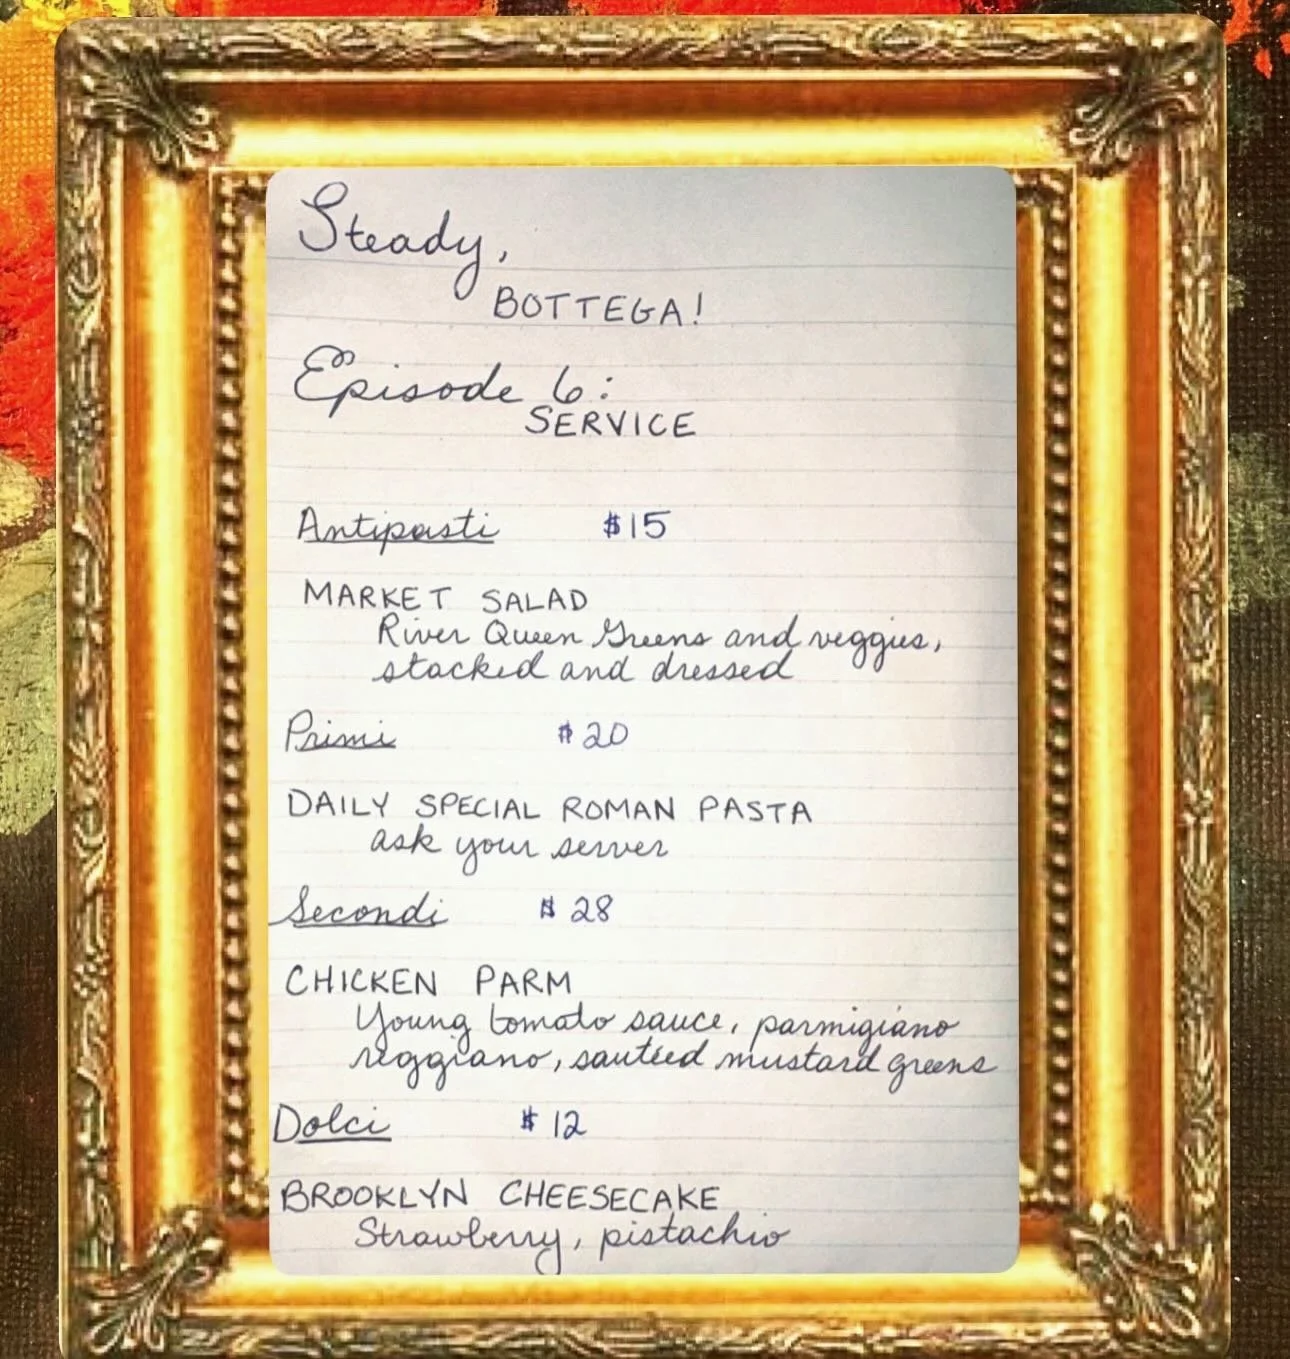 Steady,
BOTTEGA!
Episode 6:
SERVICE
Antipasti $15
MARKET SALAD
River Queen Greens and veggies,
stacked and dressed
Primi $20
DAILY SPECIAL ROMAN PASTA
ask your server
Secondi $28
CHICKEN PARM
Young tomato sauce, parmigiano
reggiano, sautéed mustard greens
Dolci $12
BROOKLYN CHEESECAKE
Strawberry, pistachio